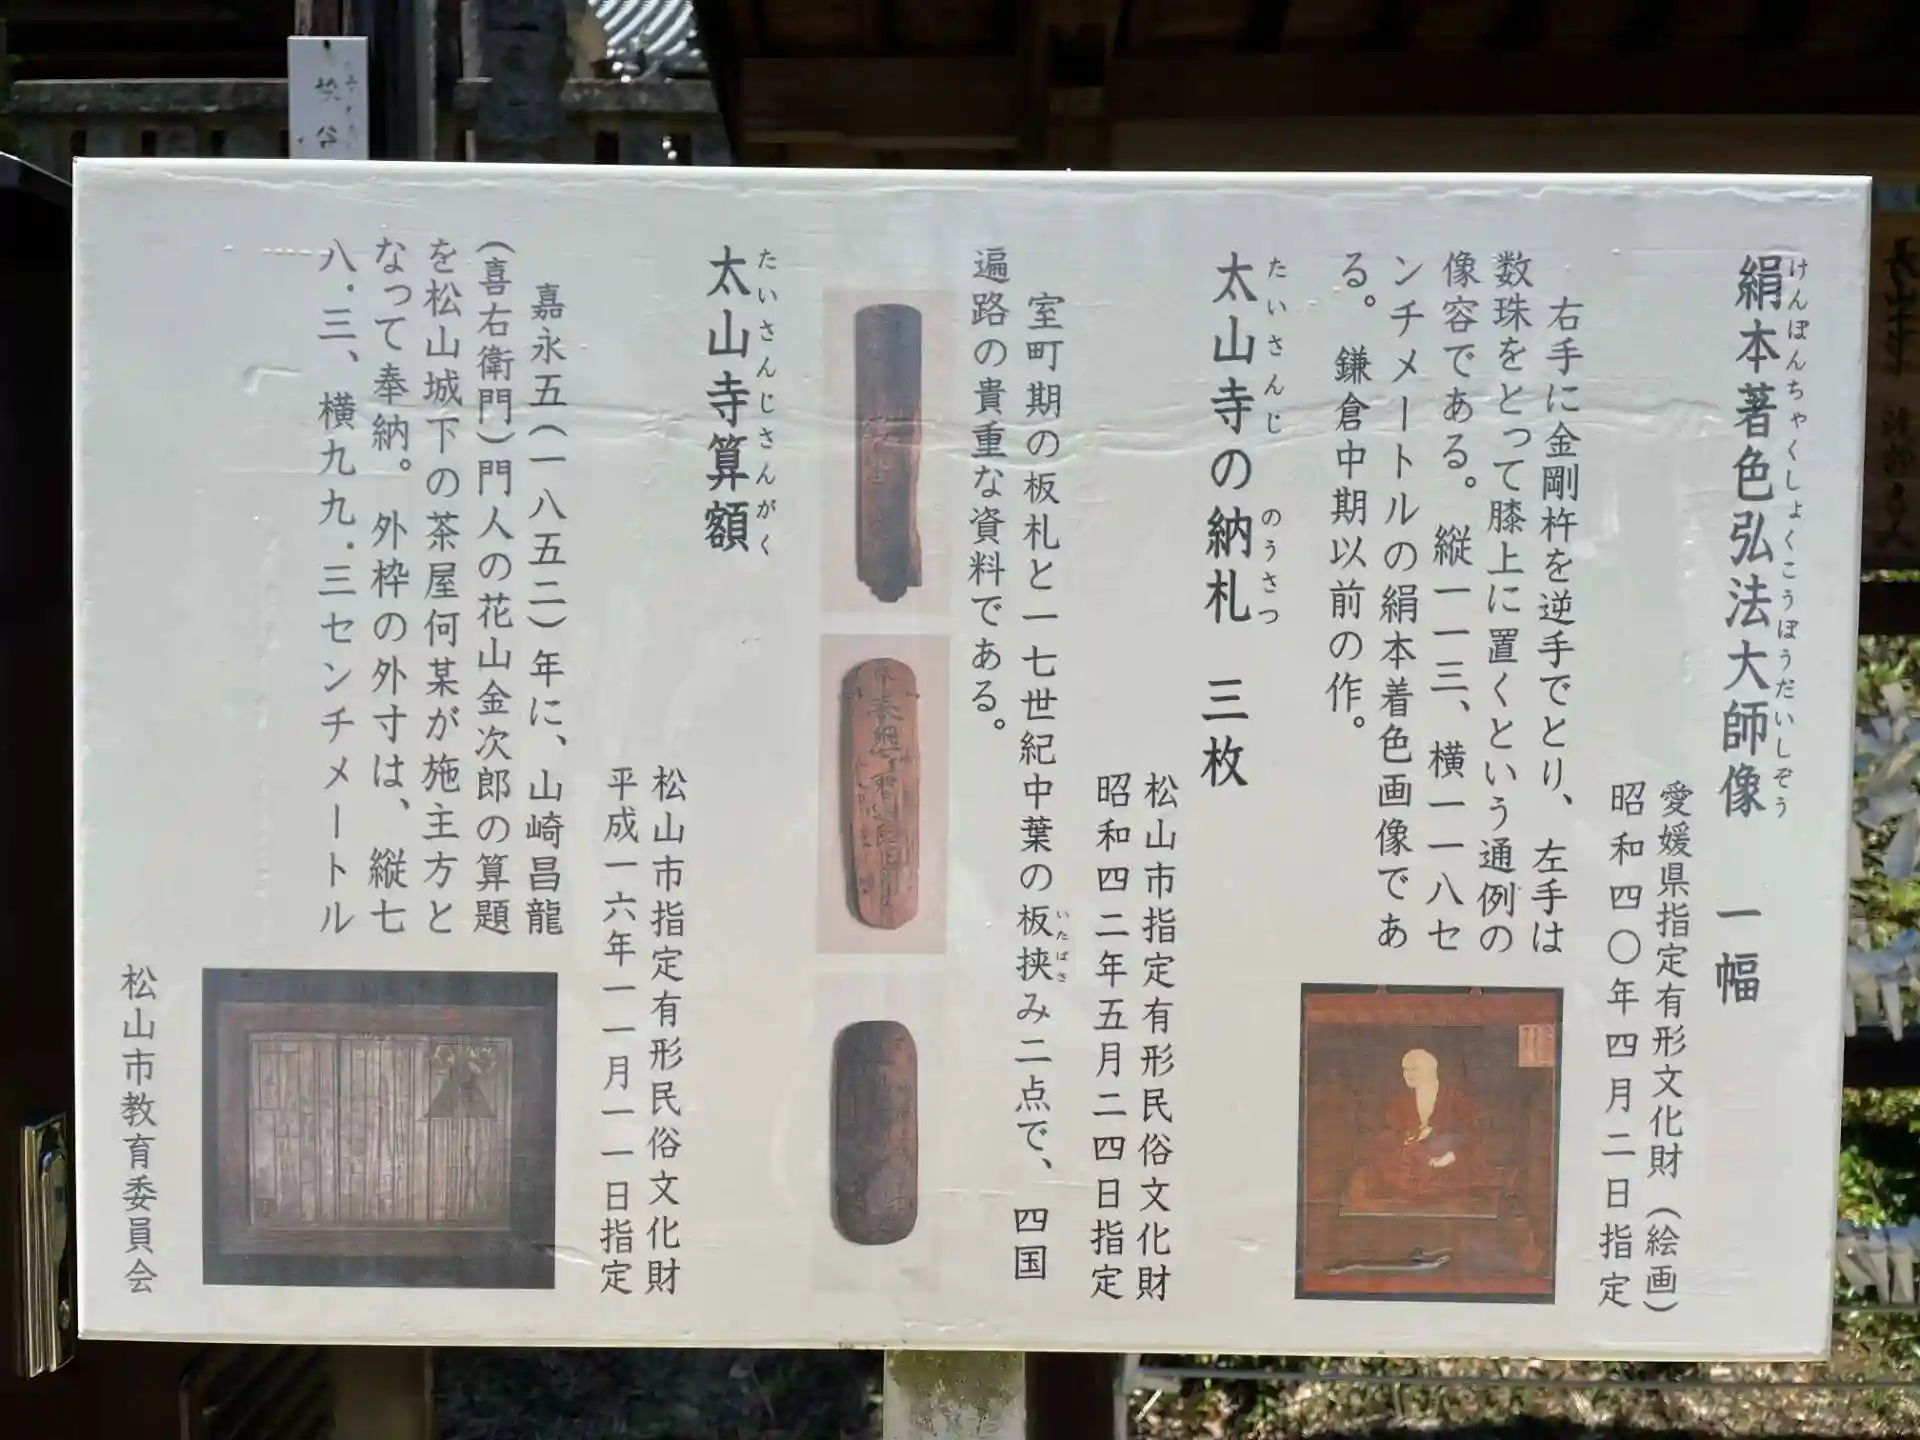 絹本著色弘法大師像　一幅
けんぽんちゃくしょくこうぼうだいしぞう
愛媛県指定有形文化財（絵画）
昭和四〇年四月二日指定
右手に金剛杵を逆手でとり、左手は
数珠をとって膝上に置くという通例の
像容である。縦一一三、横一一八セ
ンチメートルの絹本着色画像であ
る。鎌倉中期以前の作。
太山寺の納札　三枚
たいさんじ　のうさつ
松山市指定有形民俗文化財
昭和四二年五月二四日指定
室町期の板札と一七世紀中葉の板挟み二点で、四国
いたばさ
遍路の貴重な資料である。
太山寺算額
たいさんじさんがく
松山市指定有形民俗文化財
平成一六年一一月一一日指定
嘉永五（一八五二）年に、山崎昌龍
（喜右衛門）門人の花山金次郎の算題
を松山城下の茶屋何某が施主方と
なって奉納。外枠の外寸は、縦七
八・三、横九九・三センチメートル
松山市教育委員会